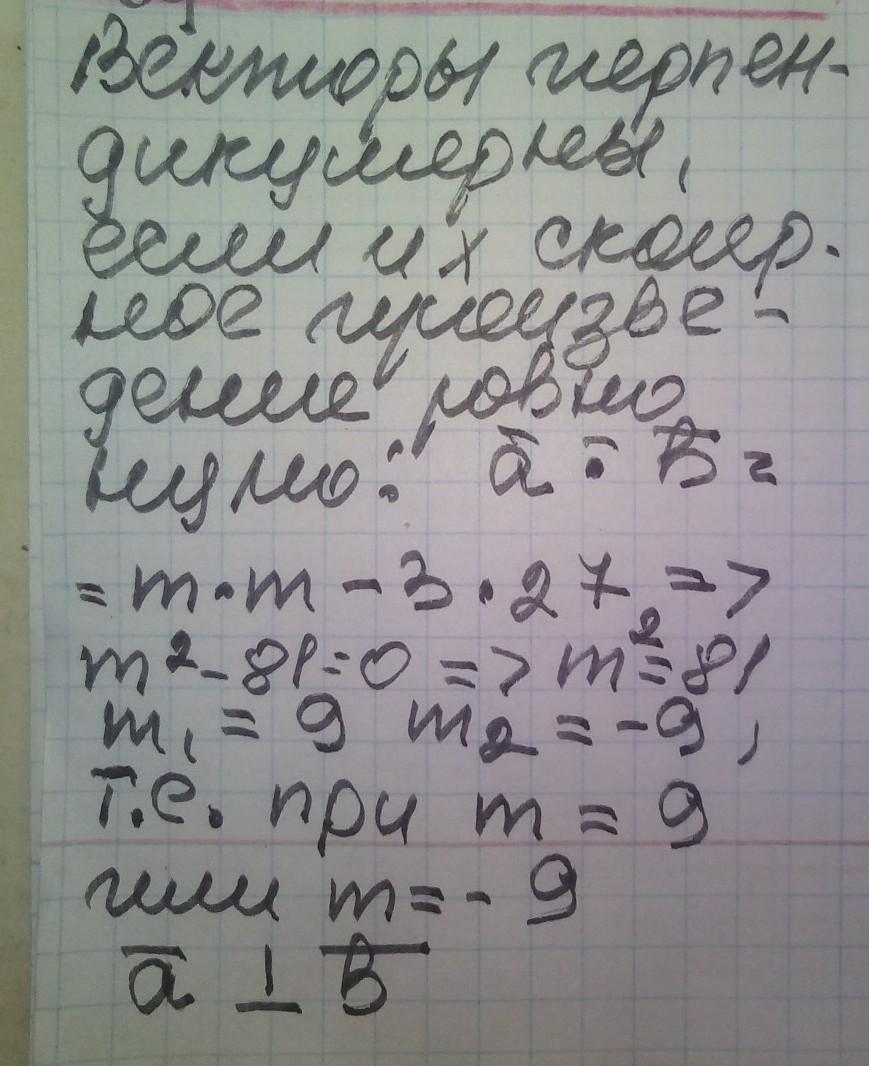 Векторы перпен-
дикулярны,
если их скаляр-
ное произве-
дение равно
нулю: a̅ · b̅ =
= m·m - 3·27 =>
m² - 81 = 0 => m² = 81
m₁ = 9 m₂ = -9,
т.е. при m = 9
или m = -9
a̅ ⊥ b̅